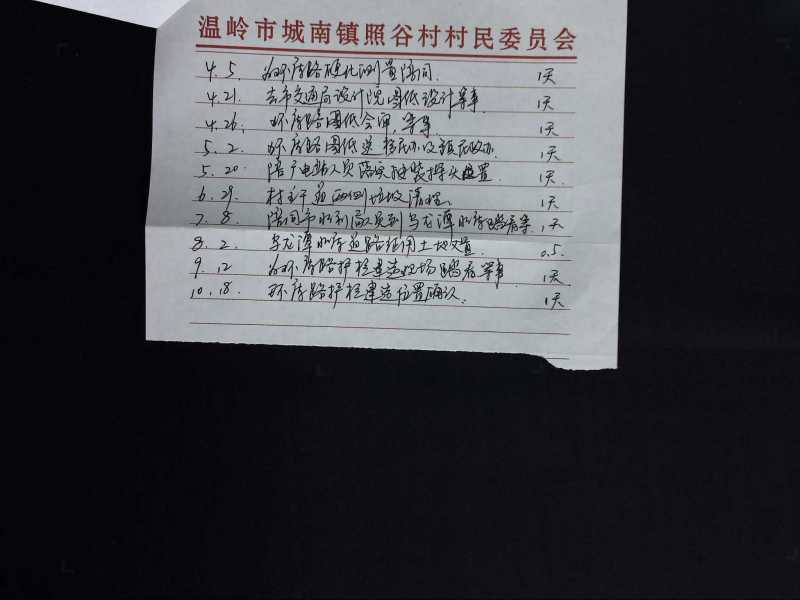 温岭市城南镇照谷村村民委员会
4.5. 为环库路硬化测量陪同. 1天
4.21. 去市交通局设计院图纸设计等事 1天
4.26. 环库路图纸会审,等事 1天
5.2. 环库路图纸送移民办及镇农办. 1天
5.20. 陪户电站人员 安装探头位置. 1天.
6.29. 村主干道两侧垃圾清理. 1天
7.8. 陪同市水利局人员到乌龙潭水库 等. 1天
8.2. 乌龙潭水库道路征用土地丈量. 0.5.
9.12 为环库路护栏建造现场 等事 1天
10.18. 环库路护栏建造位置确认. 1天